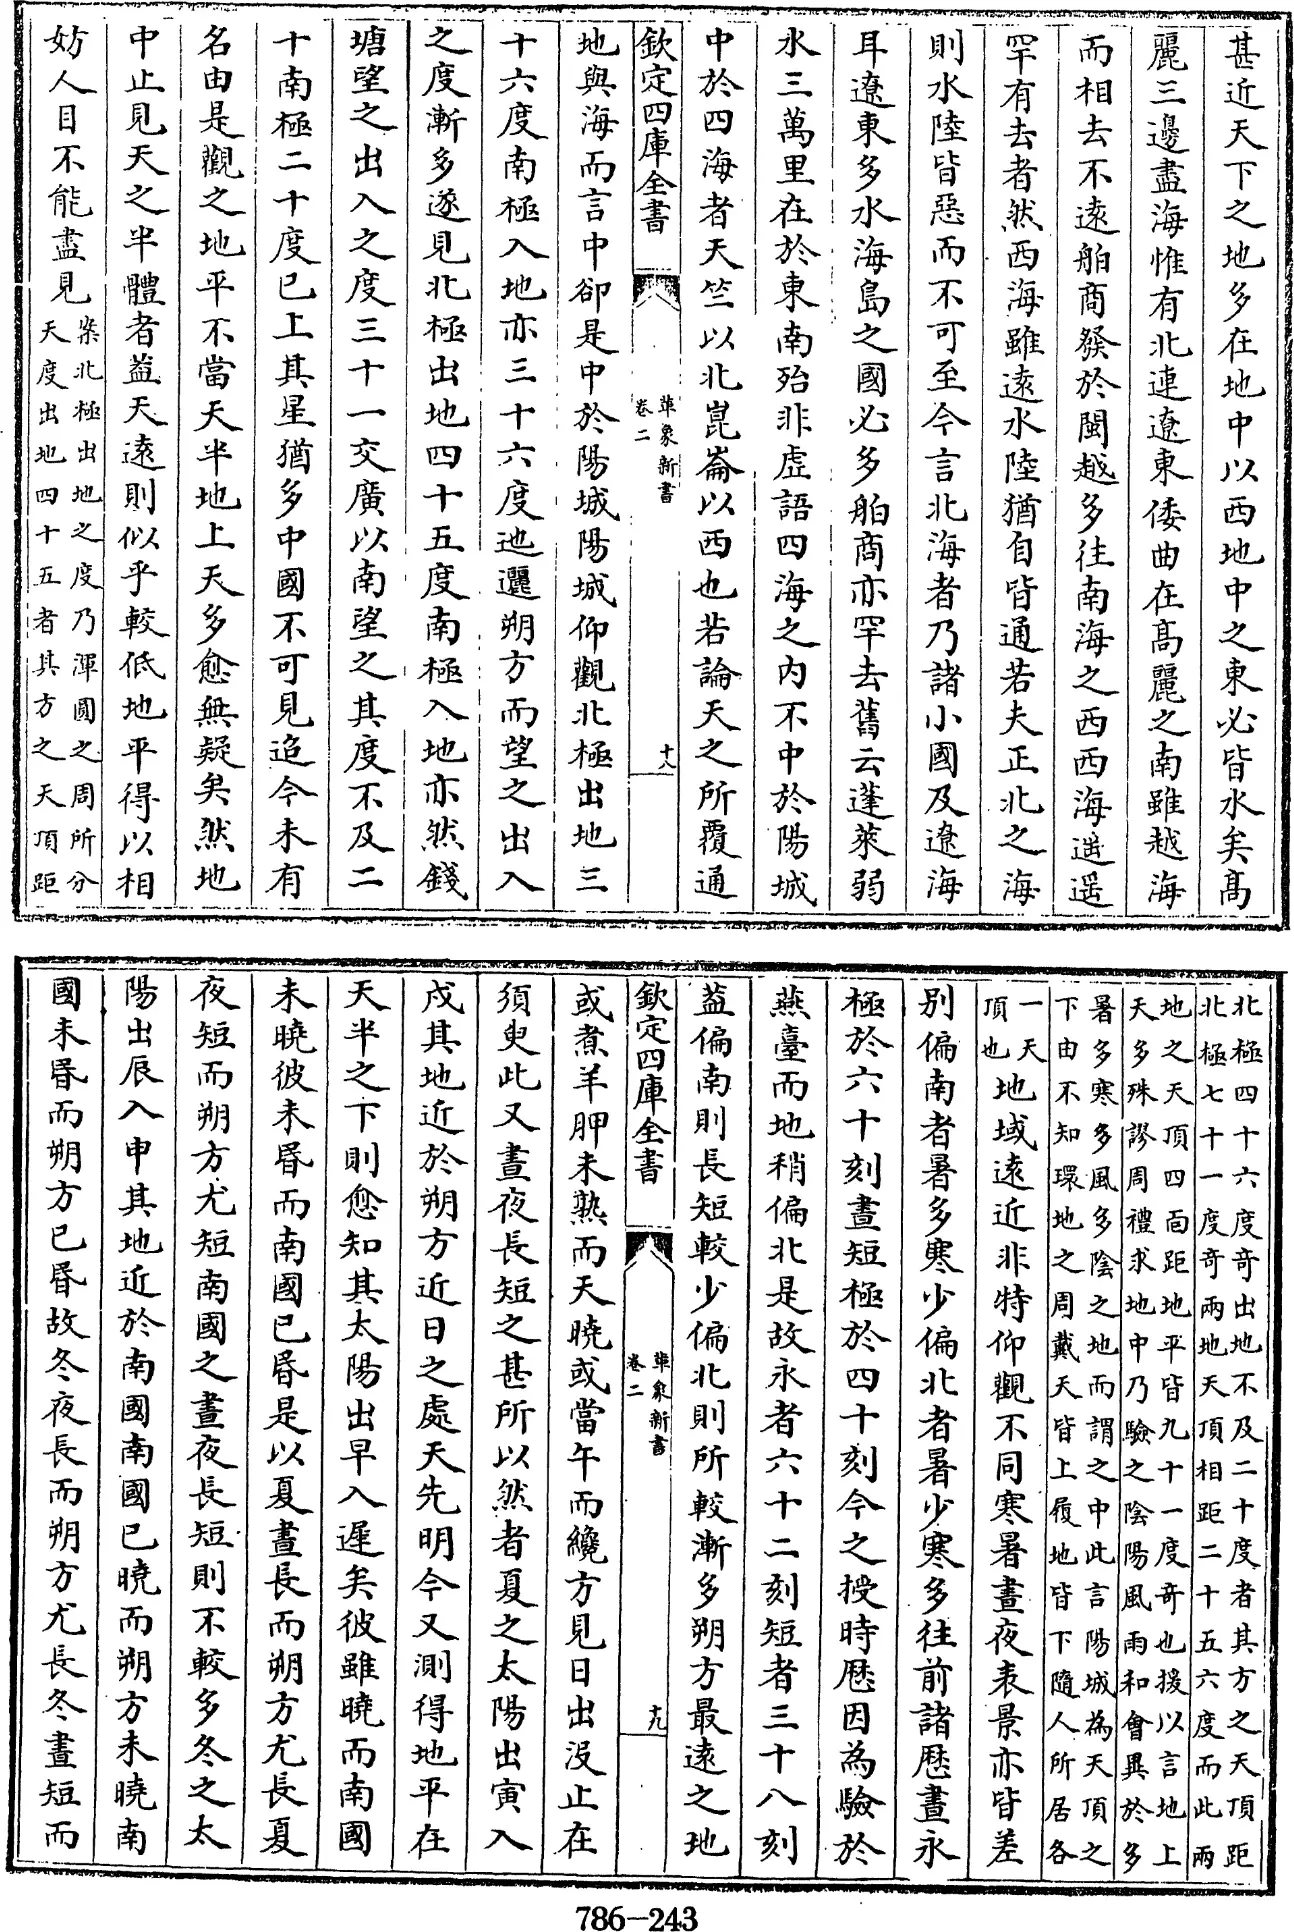 甚近天下之地多在地中以西地中之東必皆水矣髙
麗三邊盡海惟有北連遼東倭曲在髙麗之南雖越海
而相去不逺舶商發於閩越多往南海之西西海遥遥
罕有去者然西海雖逺水陸猶自皆通若夫正北之海
則水陸皆惡而不可至今言北海者乃諸小國及遼海
耳遼東多水海島之國必多舶商亦罕去舊云蓬萊弱
水三萬里在於東南殆非虚語四海之内不中於陽城
中於四海者天竺以北崑崙以西也若論天之所覆通
欽定四庫全書
革象新書
卷二
十八
地與海而言中卻是中於陽城陽城仰觀北極出地三
十六度南極入地亦三十六度迤邐朔方而望之出入
之度漸多遂見北極出地四十五度南極入地亦然錢
塘望之出入之度三十一交廣以南望之其度不及二
十南極二十度已上其星猶多中國不可見迨今未有
名由是觀之地平不當天半地上天多愈無疑矣然地
中止見天之半體者葢天逺則似乎較低地平得以相
妨人目不能盡見
案北極出地之度乃渾圓之周所分
天度出地四十五者其方之天頂距
北極四十六度奇出地不及二十度者其方之天頂距
北極七十一度奇兩地天頂相距二十五六度而此兩
地之天頂四面距地平皆九十一度奇也援以言地上
天多殊謬周禮求地中乃驗之陰陽風雨和會異於多
暑多寒多風多陰之地而謂之中此言陽城為天頂之
下由不知環地之周戴天皆上履地皆下隨人所居各
一天
頂也
地域逺近非特仰觀不同寒暑晝夜表景亦皆差
别偏南者暑多寒少偏北者暑少寒多往前諸厯晝永
極於六十刻晝短極於四十刻今之授時厯因為驗於
燕臺而地稍偏北是故永者六十二刻短者三十八刻
葢偏南則長短較少偏北則所較漸多朔方最逺之地
欽定四庫全書
革象新書
卷二
十九
或煮羊胛未熟而天曉或當午而纔方見日出没止在
須臾此又晝夜長短之甚所以然者夏之太陽出寅入
戍其地近於朔方近日之處天先明今又測得地平在
天半之下則愈知其太陽出早入遲矣彼雖曉而南國
未曉彼未昏而南國已昏是以夏晝長而朔方尤長夏
夜短而朔方尤短南國之晝夜長短則不較多冬之太
陽出辰入申其地近於南國南國已曉而朔方未曉南
國未昏而朔方已昏故冬夜長而朔方尤長冬晝短而
786-243